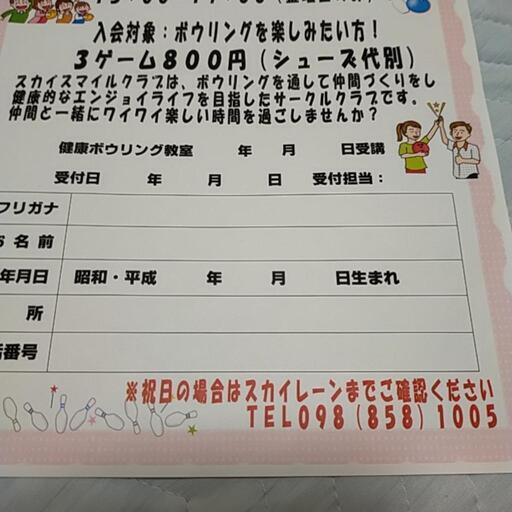 入会対象:ボウリングを楽しみたい方!
3ゲーム800円(シューズ代別)
スカイスマイルクラブは、ボウリングを通して仲間づくりをし
健康的なエンジョイライフを目指したサークルクラブです。
仲間と一緒にワイワイ楽しい時間を過ごしませんか?
健康ボウリング教室 年 月 日受講
受付日 年 月 日 受付担当:
フリガナ
名前
年月日 昭和・平成 年 月 日生まれ
所
番号
※祝日の場合はスカイレーンまでご確認ください
TEL098(858)1005